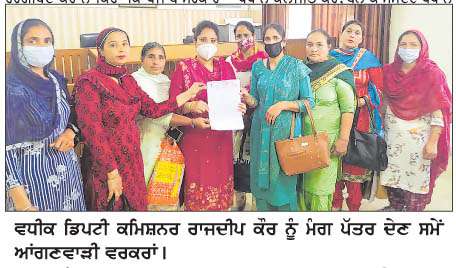 ਵਧੀਕ ਡਿਪਟੀ ਕਮਿਸ਼ਨਰ ਰਾਜਦੀਪ ਕੌਰ ਨੂੰ ਮੰਗ ਪੱਤਰ ਦੇਣ ਸਮੇਂ
ਆਂਗਣਵਾੜੀ ਵਰਕਰਾਂ।